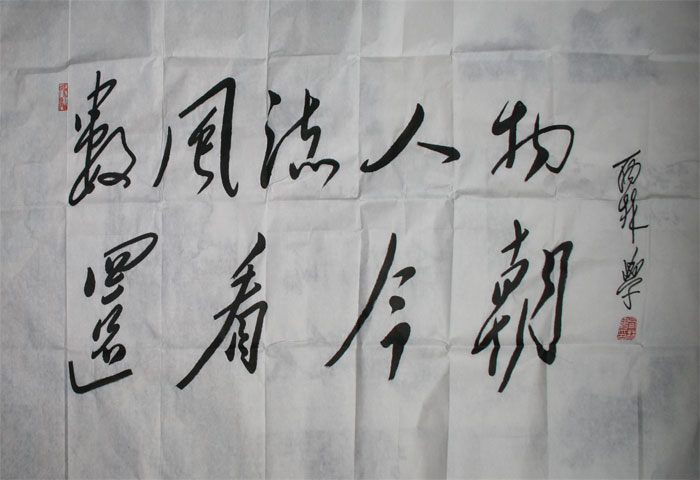 數風流人物
還看今朝
學